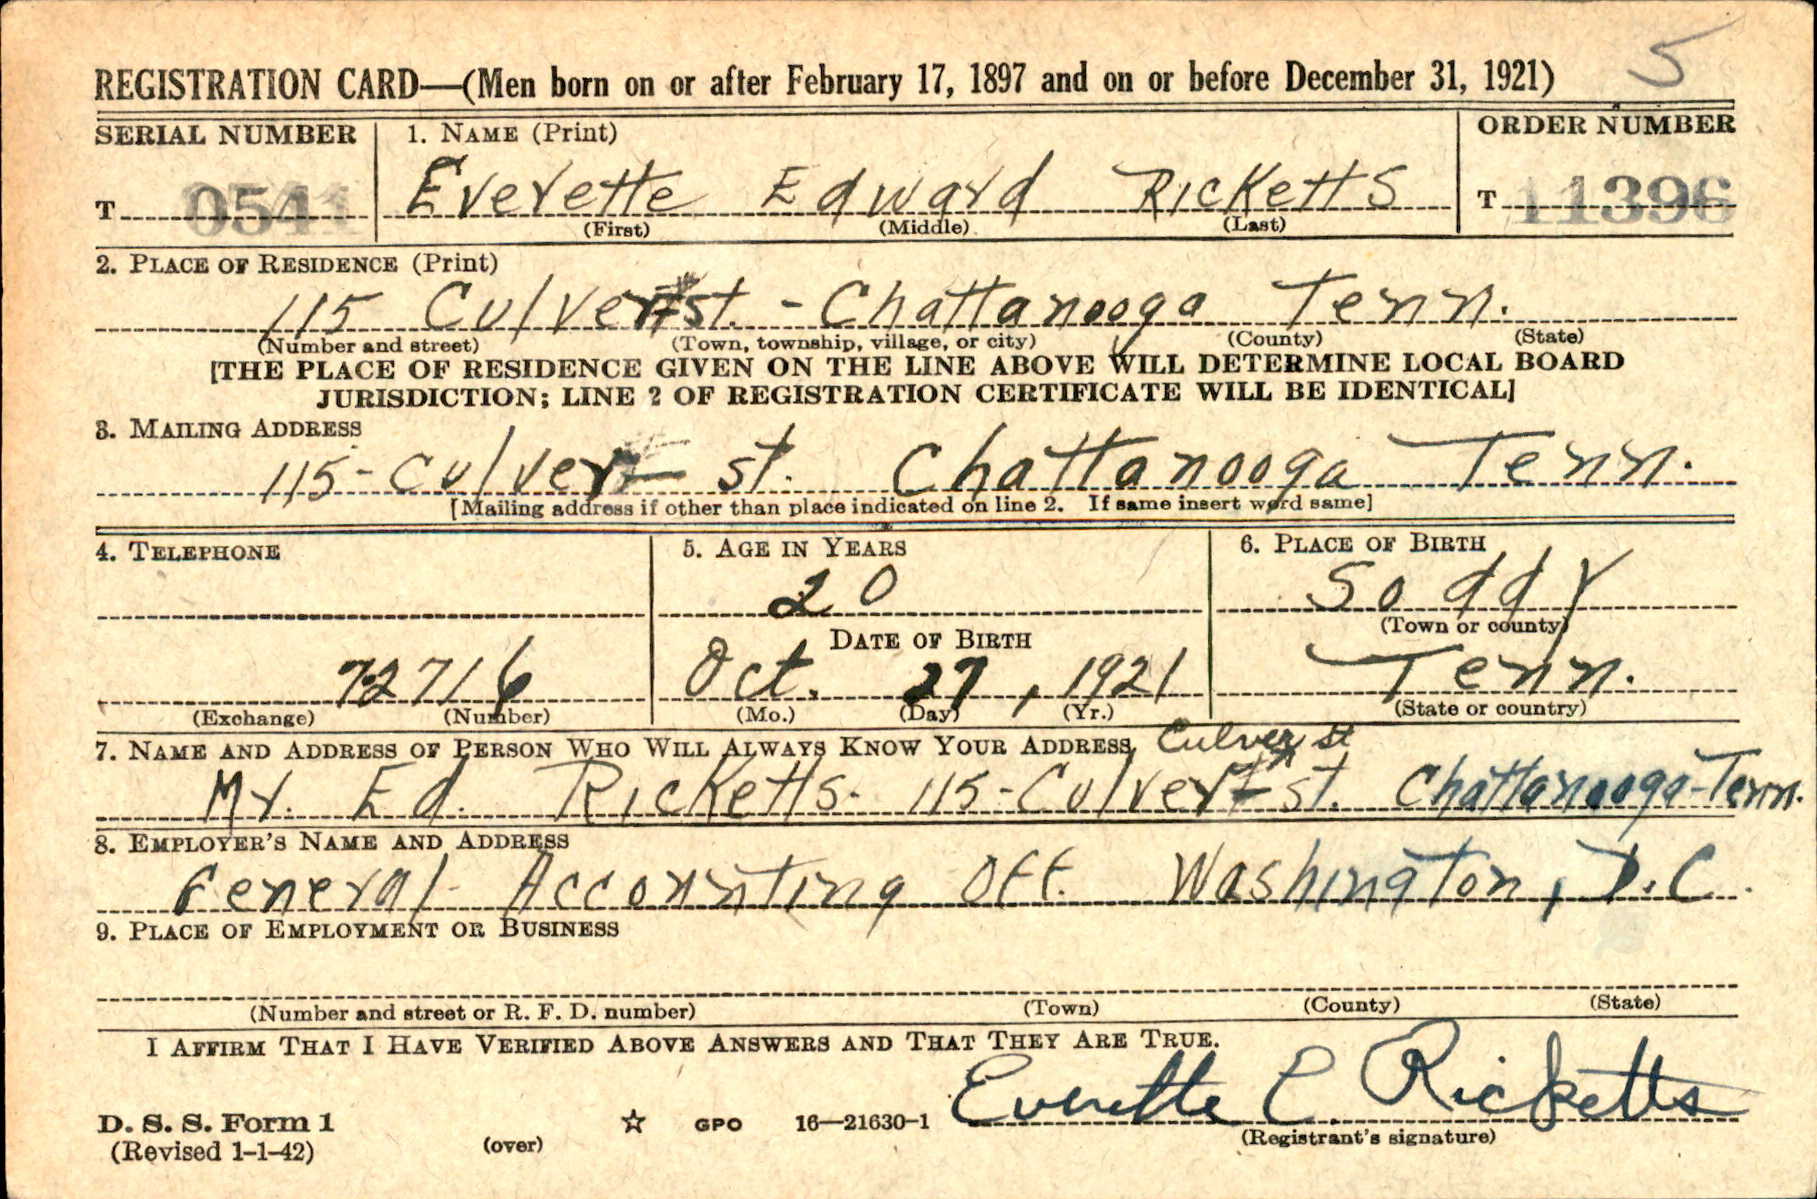 5
REGISTRATION CARD—(Men born on or after February 17, 1897 and on or before December 31, 1921)
SERIAL NUMBER
1. NAME (Print)
ORDER NUMBER
T 0541
Everette Edward Ricketts
T 11396
(First) (Middle) (Last)
2. PLACE OF RESIDENCE (Print)
115 Culver St. - Chattanooga Tenn.
(Number and street) (Town, township, village, or city) (County) (State)
[THE PLACE OF RESIDENCE GIVEN ON THE LINE ABOVE WILL DETERMINE LOCAL BOARD
JURISDICTION; LINE 2 OF REGISTRATION CERTIFICATE WILL BE IDENTICAL]
3. MAILING ADDRESS
115 - Culver St. Chattanooga Tenn.
[Mailing address if other than place indicated on line 2. If same insert word same]
4. TELEPHONE
5. AGE IN YEARS
6. PLACE OF BIRTH
20
Soddy
(Town or county)
DATE OF BIRTH
72716
Oct. 27, 1921
Tenn.
(Exchange) (Number)
(Mo.) (Day) (Yr.)
(State or country)
7. NAME AND ADDRESS OF PERSON WHO WILL ALWAYS KNOW YOUR ADDRESS
Culver St
Mr. Ed. Ricketts. 115 - Culvert St. Chattanooga - Tenn.
8. EMPLOYER'S NAME AND ADDRESS
General Accounting Off. Washington, D.C.
9. PLACE OF EMPLOYMENT OR BUSINESS
(Number and street or R. F. D. number) (Town) (County) (State)
I AFFIRM THAT I HAVE VERIFIED ABOVE ANSWERS AND THAT THEY ARE TRUE.
Everette E. Ricketts
(Registrant's signature)
D. S. S. Form 1
(Revised 1-1-42)
(over)
☆ GPO 16—21630-1